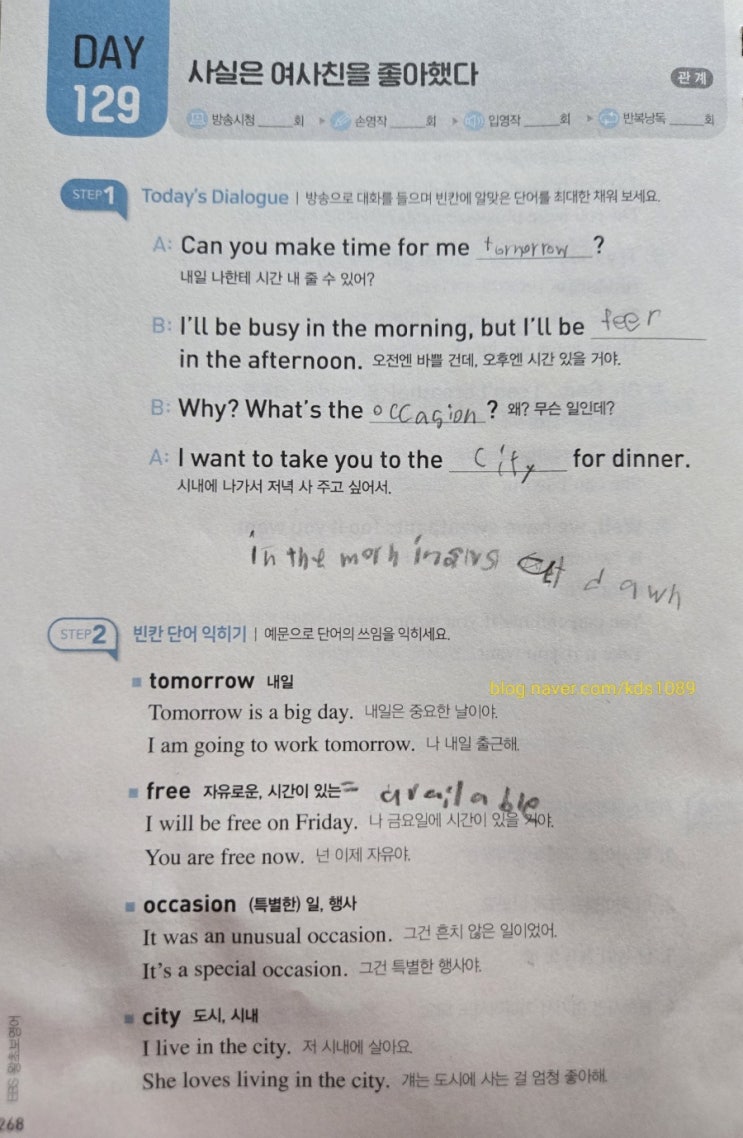 DAY
129
사실은 여사친을 좋아했다
관계
방송시청 _____회 ▶ 손영작 _____회 ▶ 입영작 _____회 ▶ 반복낭독 _____회
STEP 1 Today's Dialogue | 방송으로 대화를 들으며 빈칸에 알맞은 단어를 최대한 채워 보세요.
A: Can you make time for me tomorrow ?
내일 나한테 시간 내 줄 수 있어?
B: I'll be busy in the morning, but I'll be feer
in the afternoon. 오전엔 바쁠 건데, 오후엔 시간 있을 거야.
B: Why? What's the occasion ? 왜? 무슨 일인데?
A: I want to take you to the city for dinner.
시내에 나가서 저녁 사 주고 싶어서.
in the
STEP 2 빈칸 단어 익히기 | 예문으로 단어의 쓰임을 익히세요.
■ tomorrow 내일
blog.naver.com/kds1089
Tomorrow is a big day. 내일은 중요한 날이야.
I am going to work tomorrow. 나 내일 출근해.
■ free 자유로운, 시간이 있는 = available
I will be free on Friday. 나 금요일에 시간이 있을 거야.
You are free now. 넌 이제 자유야.
■ occasion (특별한) 일, 행사
It was an unusual occasion. 그건 흔치 않은 일이었어.
It's a special occasion. 그건 특별한 행사야.
■ city 도시, 시내
I live in the city. 저 시내에 살아요.
She loves living in the city. 걔는 도시에 사는 걸 엄청 좋아해.
EBS 왕초보영어
268